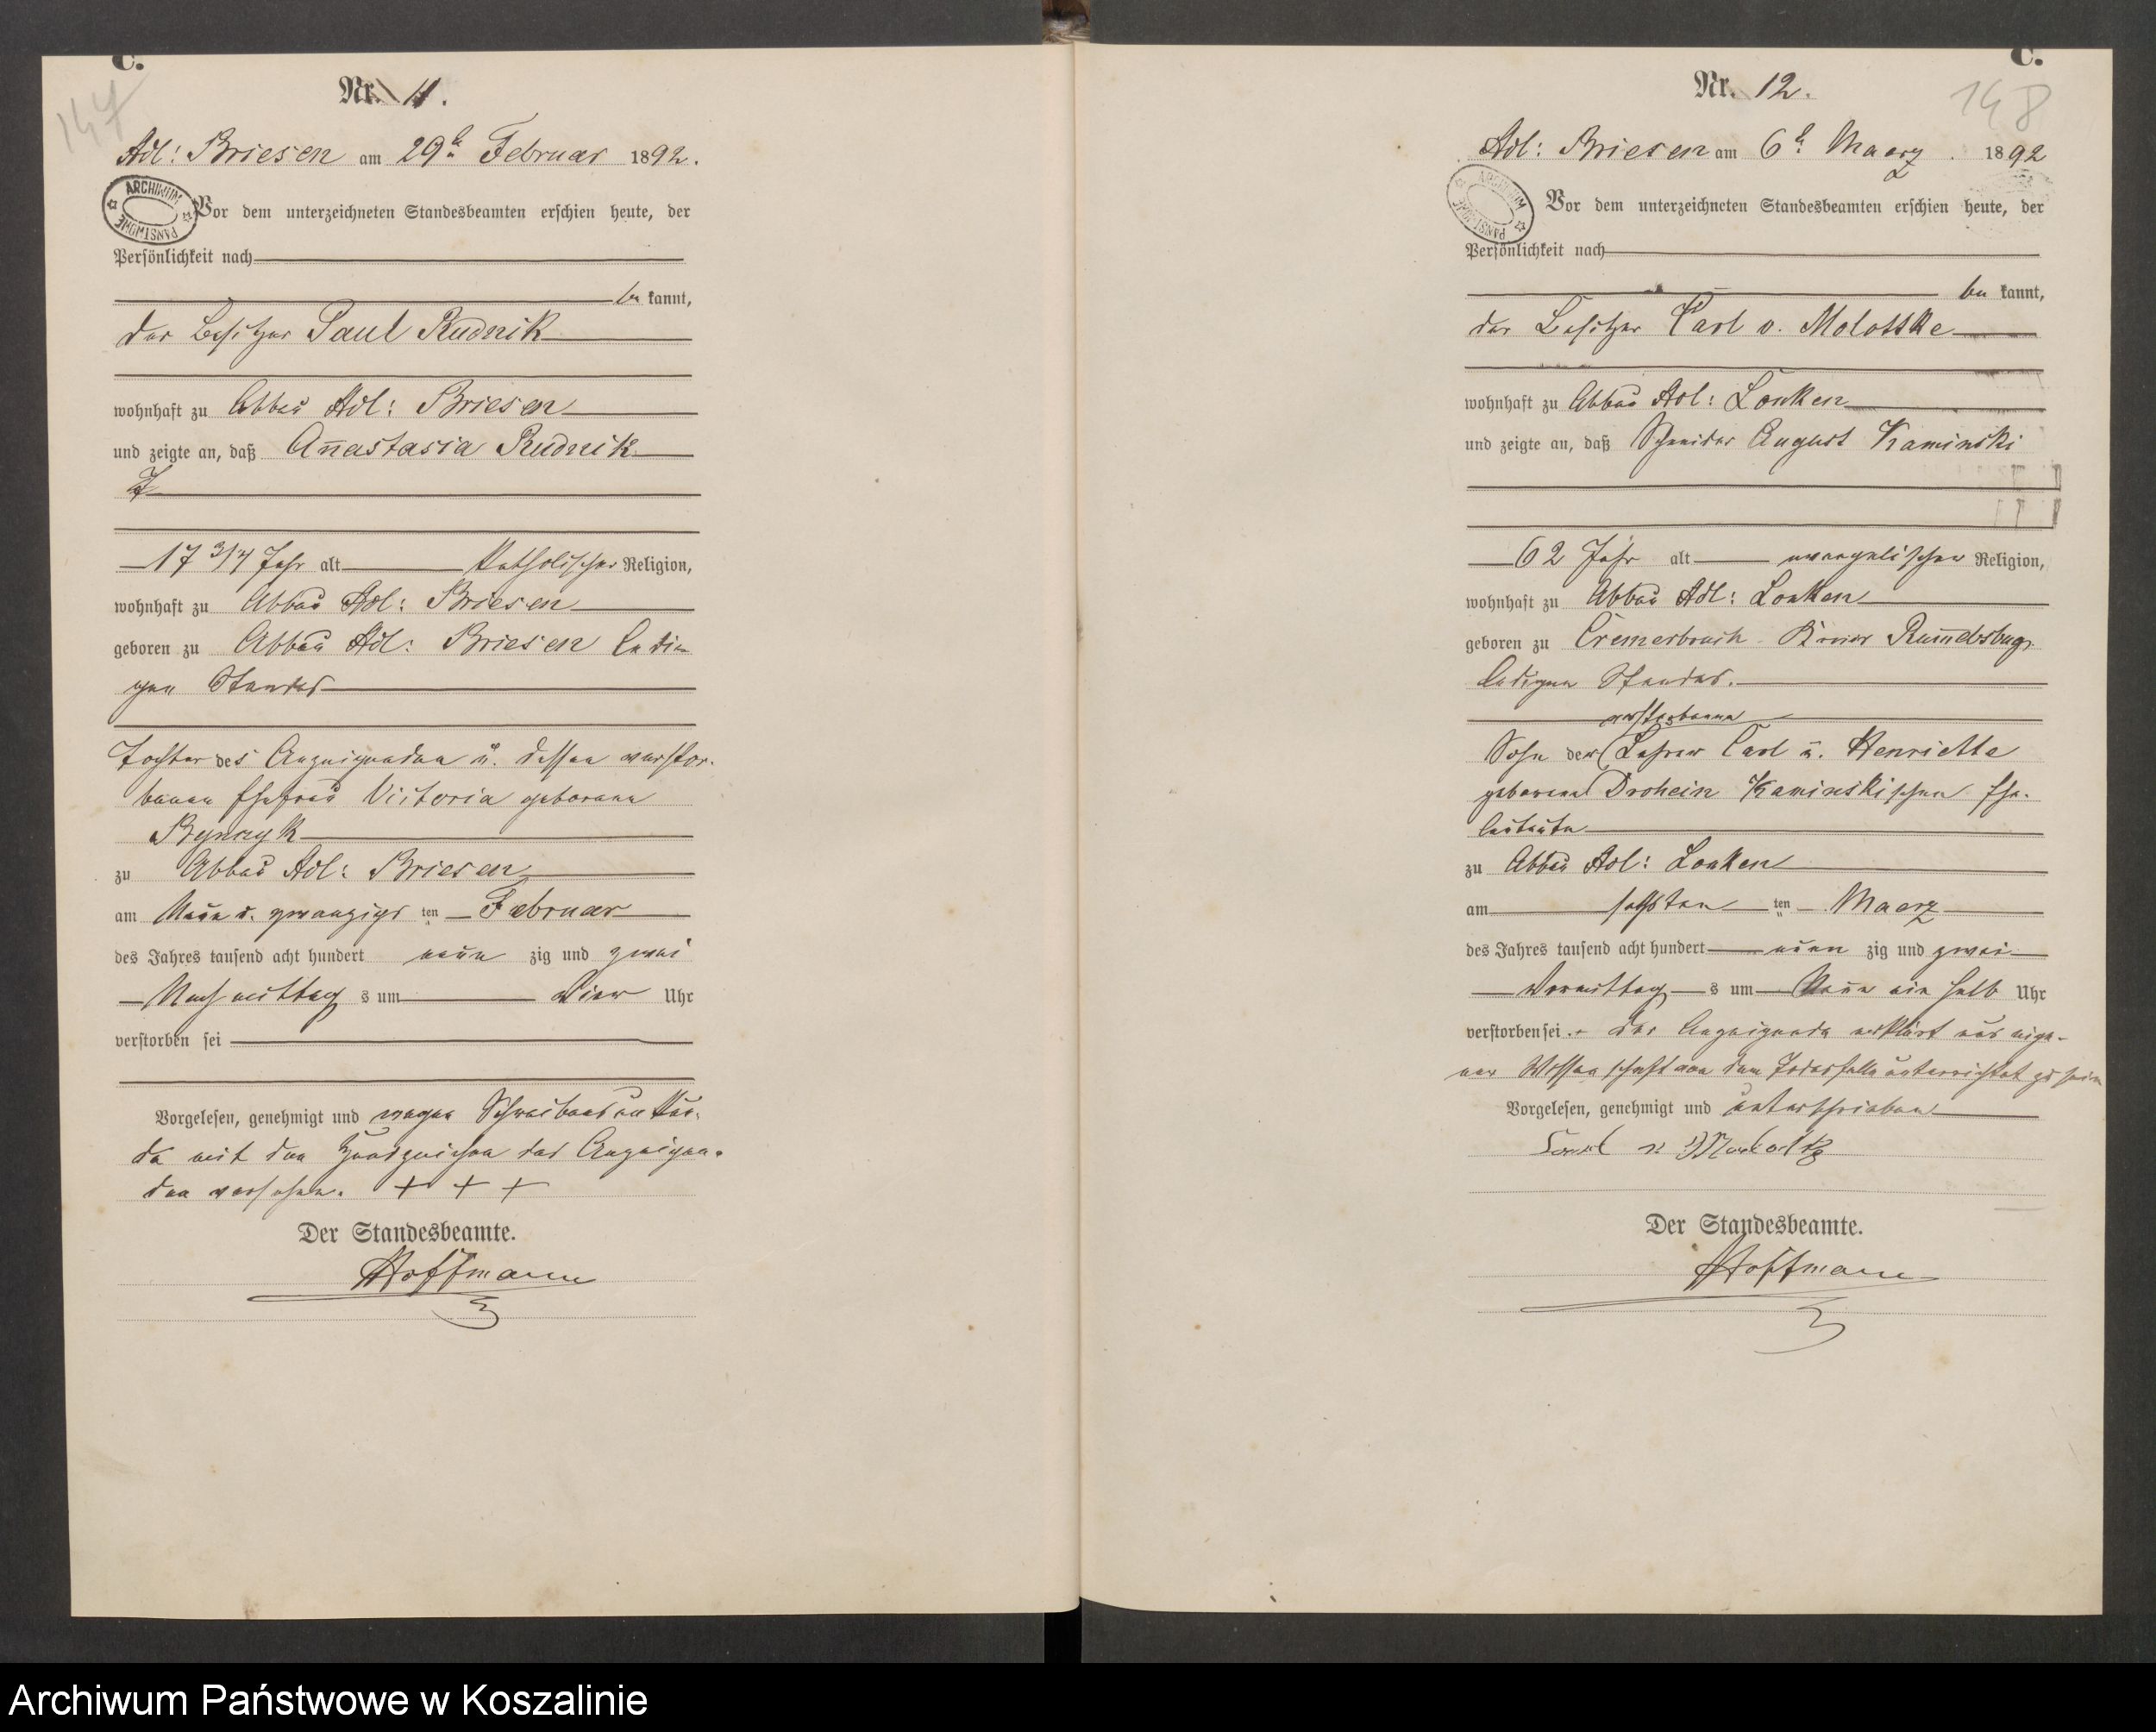 C.
147
Nr. 11.
Adl: Briesen am 29t. Februar 1892.
ARCHIWUM PAŃSTWOWE
Vor dem unterzeichneten Standesbeamten erschien heute, der
Persönlichkeit nach
be kannt,
der Besitzer Paul Rudnik
wohnhaft zu Abbau Adl: Briesen
und zeigte an, daß Anastasia Rudnik
17 3/4 Jahr alt Katholischer Religion,
wohnhaft zu Abbau Adl: Briesen
geboren zu Abbau Adl: Briesen ledi-
gen Standes
Tochter des Anzeigenden u. dessen verstor-
benen Ehefrau Victoria geborene
zu Abbau Adl: Briesen
am Neun u. zwanzigs ten Februar
des Jahres tausend acht hundert neun zig und zwei
Nachmittag s um Vier Uhr
verstorben sei
Vorgelesen, genehmigt und wegen Schreibensunkun-
de mit den Handzeichen des Anzeigen-
den versehen. + + +
Der Standesbeamte.
Hoffmann
C.
148
Nr. 12.
Adl: Briesen am 6t. Maerz. 1892
ARCHIWUM PAŃSTWOWE
Vor dem unterzeichneten Standesbeamten erschien heute, der
Persönlichkeit nach
be kannt,
der Besitzer Carl v. Molottke
wohnhaft zu Abbau Adl: Lonken
und zeigte an, daß Schneider August Kaminski
62 Jahr alt evangelischer Religion,
wohnhaft zu Abbau Adl: Lonken
geboren zu Cremerbruch Kreis Rummelsburg
ledigen Standes.
verstorbenen
Sohn der Lehrer Carl u. Henriette
geborene Drohein Kaminskischen Ehe-
leute
zu Abbau Adl: Lonken
am sechsten ten Maerz
des Jahres tausend acht hundert neun zig und zwei
Vormittag s um Neun ein halb Uhr
verstorben sei. der Anzeigende erklärt aus eige-
ner Wissenschaft von dem Todesfalle unterrichtet zu sein
Vorgelesen, genehmigt und unterschrieben
Carl v
Der Standesbeamte.
Hoffmann
Archiwum Państwowe w Koszalinie